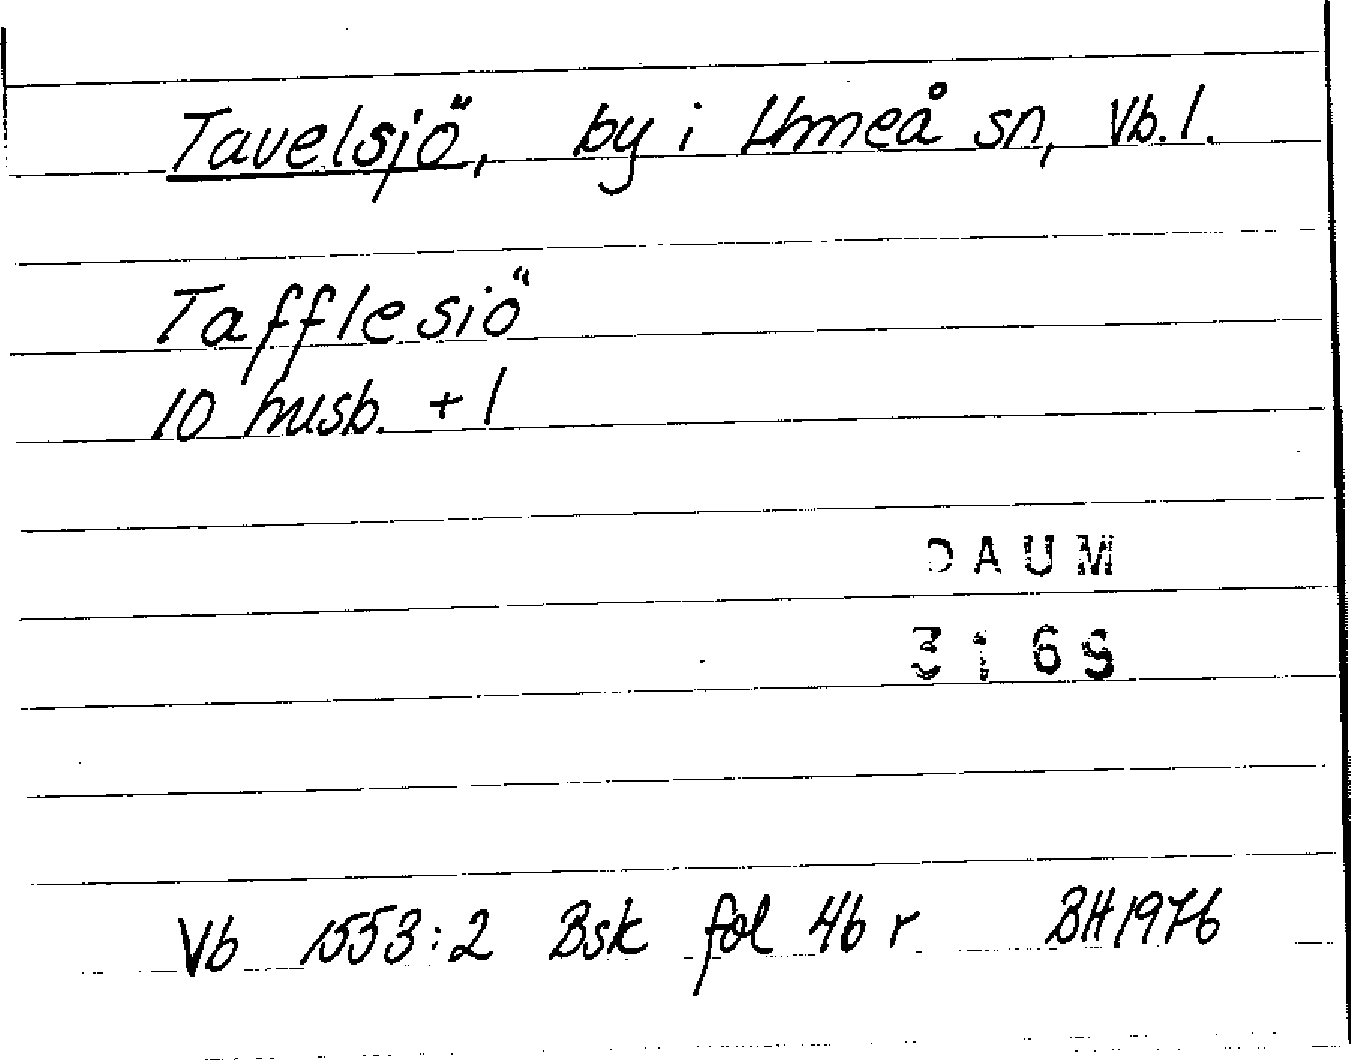 Tavelsjö, by i Umeå sn, Vb. l.
Tafflesiö
10 husb. + 1
DAUM
3169
Vb 1553:2 Bsk fol 46 r BH 1976